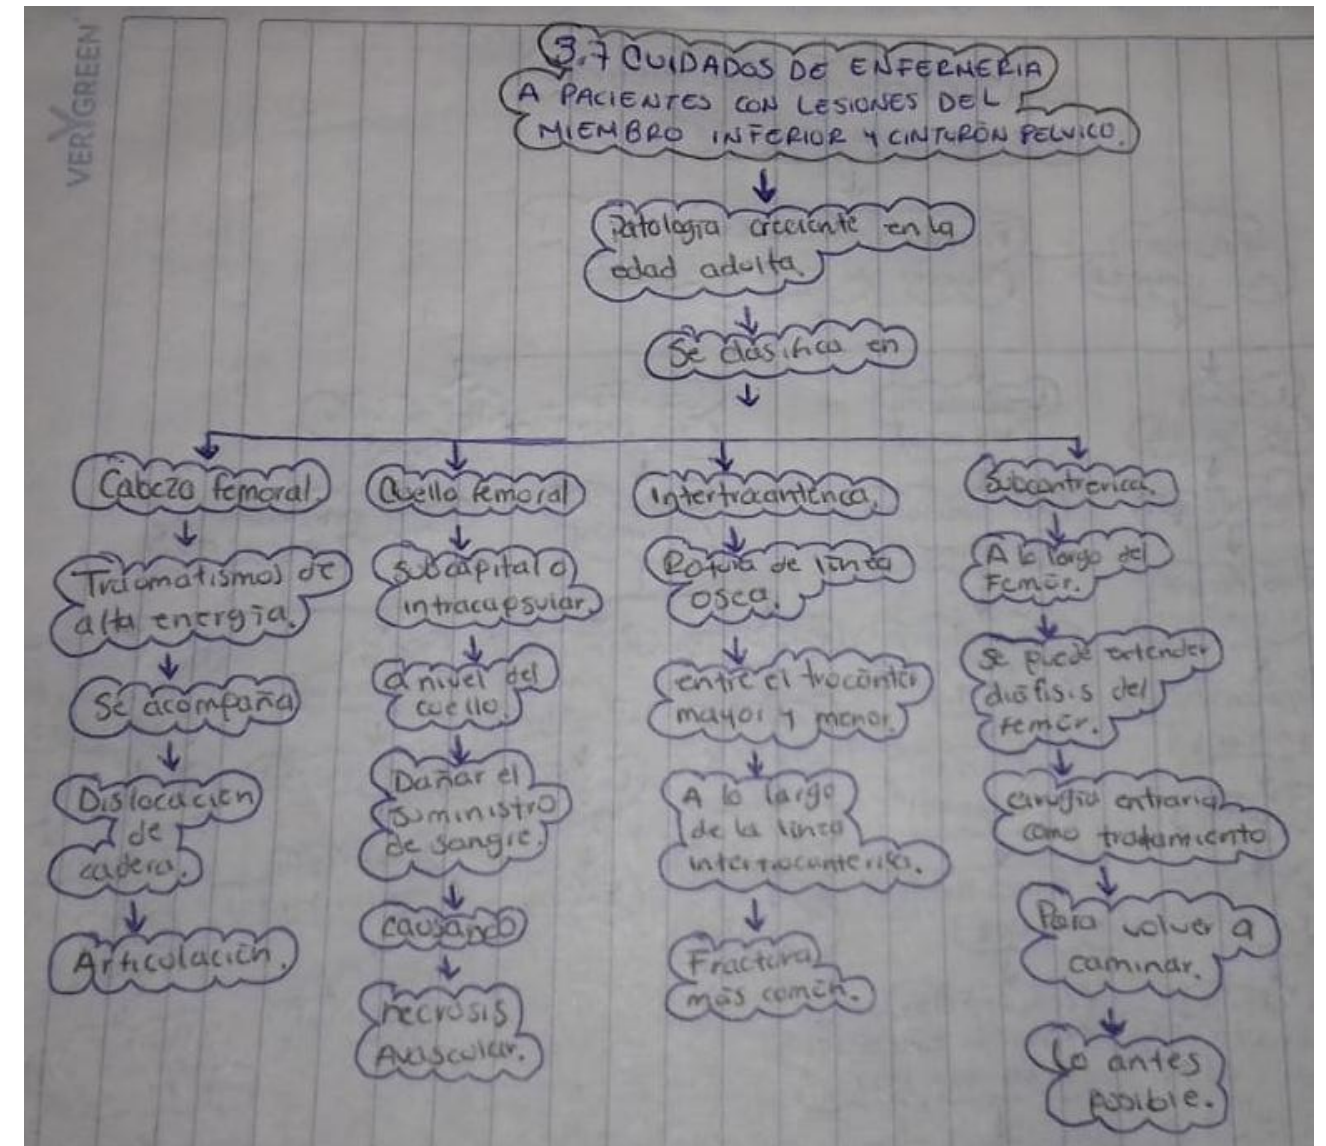 VERYGREEN
3.7 CUIDADOS DE ENFERMERIA
A PACIENTES CON LESIONES DEL
MIEMBRO INFERIOR Y CINTURÓN PELVICO.
Patología creciente en la
edad adulta.
Se clasifica en
Cabeza femoral.
Traumatismos de
alta energía.
Se acompaña
Dislocación
de
cadera.
Articulación.
Cuello femoral
subcapital o
intracapsular.
a nivel del
cuello.
Dañar el
suministro
de sangre.
causando
necrosis
Avascular.
Intertrocantérica.
Rotura de línea
osea.
entre el trocánter
mayor y menor.
A lo largo
de la línea
intertrocanterica.
Fractura
más común.
Subcontrerica.
A lo largo del
Femúr.
Se puede extender
diáfisis del
femúr.
cirugía entraría
como tratamiento
Para volver a
caminar.
Lo antes
posible.